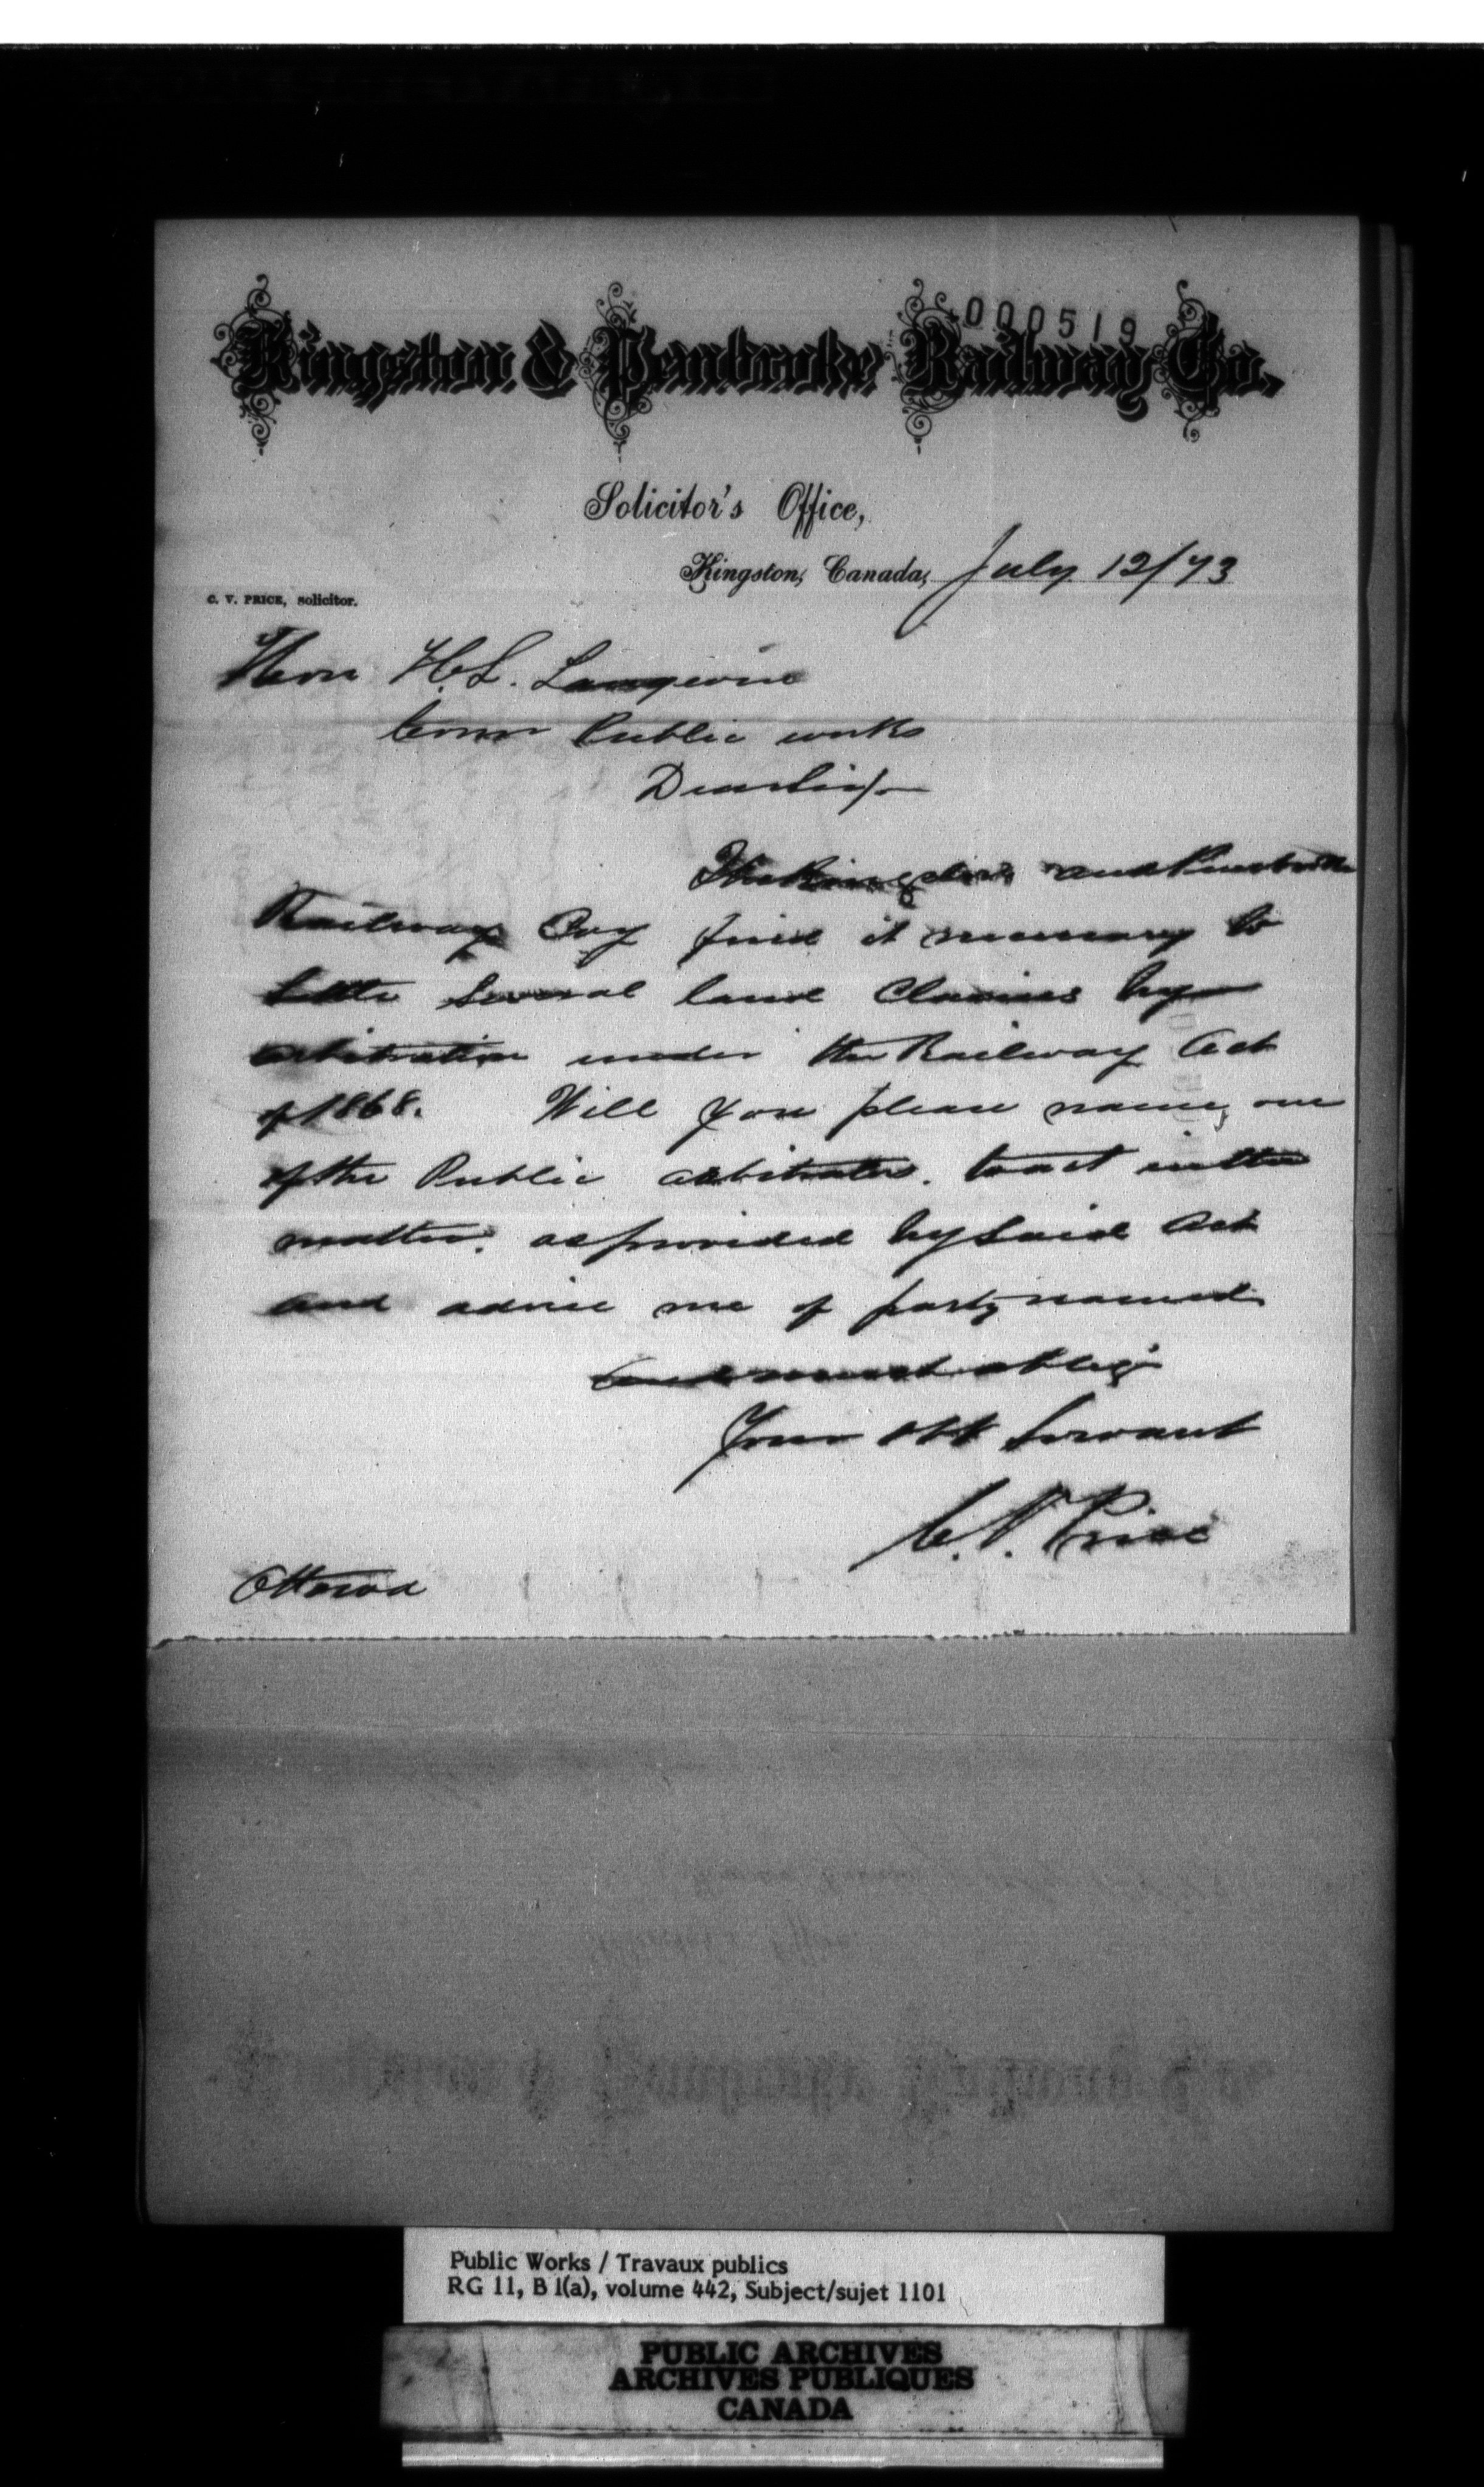 000519
Kingston & Pembroke Railway Co.
Solicitor's Office,
Kingston, Canada, July 12/73
C. V. PRICE, Solicitor.
Hon H. L. Langevin
Comr Public works
Dear Sir/
The Kingston and Pembroke
Railway Coy find it necessary to
settle several land claims by
arbitration under the Railway Act
of 1868. Will you please name one
of the Public arbitrators. to act in the
matter. as provided by said Act
and advise me of party named
and much oblige
Your obt Servant
C. V. Price
Ottawa
Public Works / Travaux publics
RG 11, B 1(a), volume 442, Subject/sujet 1101
PUBLIC ARCHIVES
ARCHIVES PUBLIQUES
CANADA